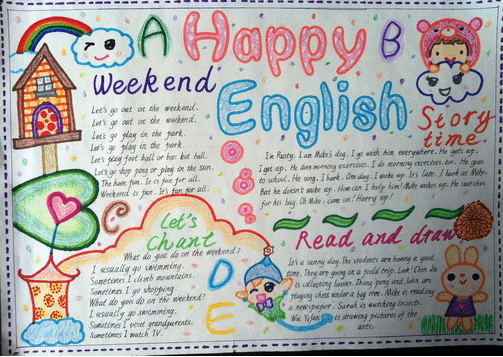 A Happy B
English
Weekend
Let's go out on the weekend.
Let's go out on the weekend.
Let's go play in the park.
Let's go play in the park.
Let's play foot ball or bas ket ball.
Let's go shop ping or play in the sun.
The have fun. It is fun for all.
Weekend is fun. It's fun for all.
Story time.
I'm Rusty. I am Mike's dog. I go with him everywhere. He gets up.
I get up. He does morning exercises. I do morning exercises, too. He goes
to school. He sing. I bark. One day, I wake up. It's late. I bark at Mike.
But he doesn't wake up. How can I help him! Mike wakes up. He searches
for his bag. Oh Mike, come on! Hurry up!
C
Let's
Chant
What do you do on the weekend?
I usually go swimming.
Sometimes I climb mountains.
Sometimes I go shopping.
What do you do on the weekend?
I usually go swimming.
Sometimes I visit grandparents.
Sometimes I watch TV.
D
E
Read and draw
It's a sunny day. The students are having a good
time. They are on a field trip. Look! Chen Jie
is collecting leaves. Zhang Peng and John are
playing chess under a big tree. Mike is reading
a newspaper. Sarah is watching insects.
Wu Yifan is drawing pictures of the
ants.